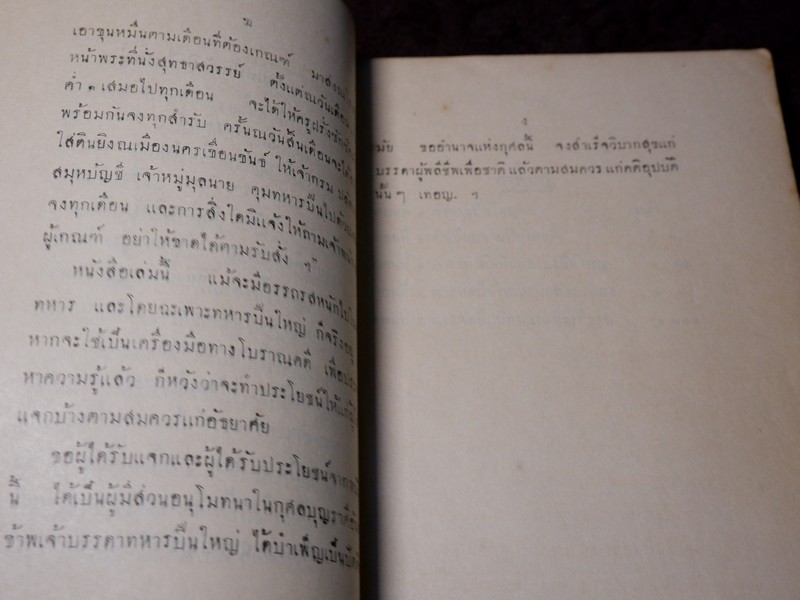 เอาขุนหมื่นตามเดือนที่ต้องเกณฑ์
หน้าพระที่นั่งสุทธาสวรรย์ ตั้งแต่ณวันเดือน
ค่ำ ๑ เสมอไปทุกเดือน จะได้ให้ครูฝรั่ง
พร้อมกันจงทุกสำรับ ครั้นณวันสิ้นเดือนจะได้
ใส่ดินยิงณเมืองนครเขื่อนขันธ์ ให้เจ้ากรม ปลัด
สมุหบัญชี เจ้าหมู่มุลนาย คุมทหารปืนไป
จงทุกเดือน และการสิ่งใดมิแจ้งให้ถามเจ้าพนักงาน
ผู้เกณฑ์ อย่าให้ขาดได้ตามรับสั่ง ฯ"
หนังสือเล่มนี้ แม้จะมีอรรถรสหนักไป
ทหาร และโดยฉะเพาะทหารปืนใหญ่ ก็จริงอยู่
หากจะใช้เป็นเครื่องมือทางโบราณคดี เพื่อ
หาความรู้แล้ว ก็หวังว่าจะทำประโยชน์ให้แก่ผู้
แจกบ้างตามสมควรแก่อัธยาศัย
ขอผู้ได้รับแจกและผู้ได้รับประโยชน์จาก
นี้ ได้เป็นผู้มีส่วนอนุโมทนาในกุศลบุญราศี
ข้าพเจ้าบรรดาทหารปืนใหญ่ ได้บำเพ็ญเป็น
ง
สมัย ขออำนาจแห่งกุศลนี้ จงสำเร็จวิบากสุขแก่
บรรดาผู้พลีชีพเพื่อชาติ แล้วตามสมควร แก่คติอุปบัติ
นั้น ๆ เทอญ. ฯ